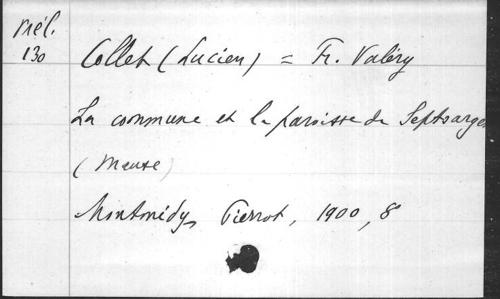 Mél.
130
Collet (Lucien) = Fr. Valéry
La commune et la paroisse de Septsarges
(Meuse)
Montmédy, Pierrot, 1900, 8°